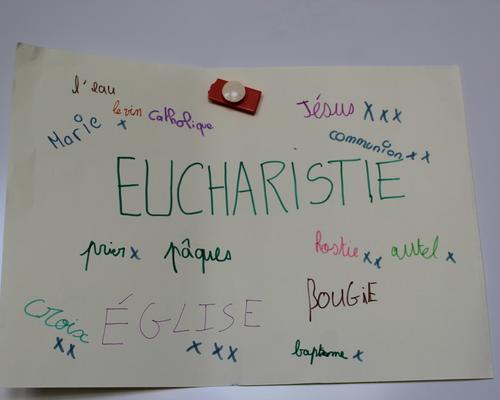 l'eau
le vin x catholique
Marie
Jésus x x x
communion x x
EUCHARISTIE
prier x pâques
hostie x x autel x
BOUGiE
croix x x
ÉGLISE x x x
baptême x